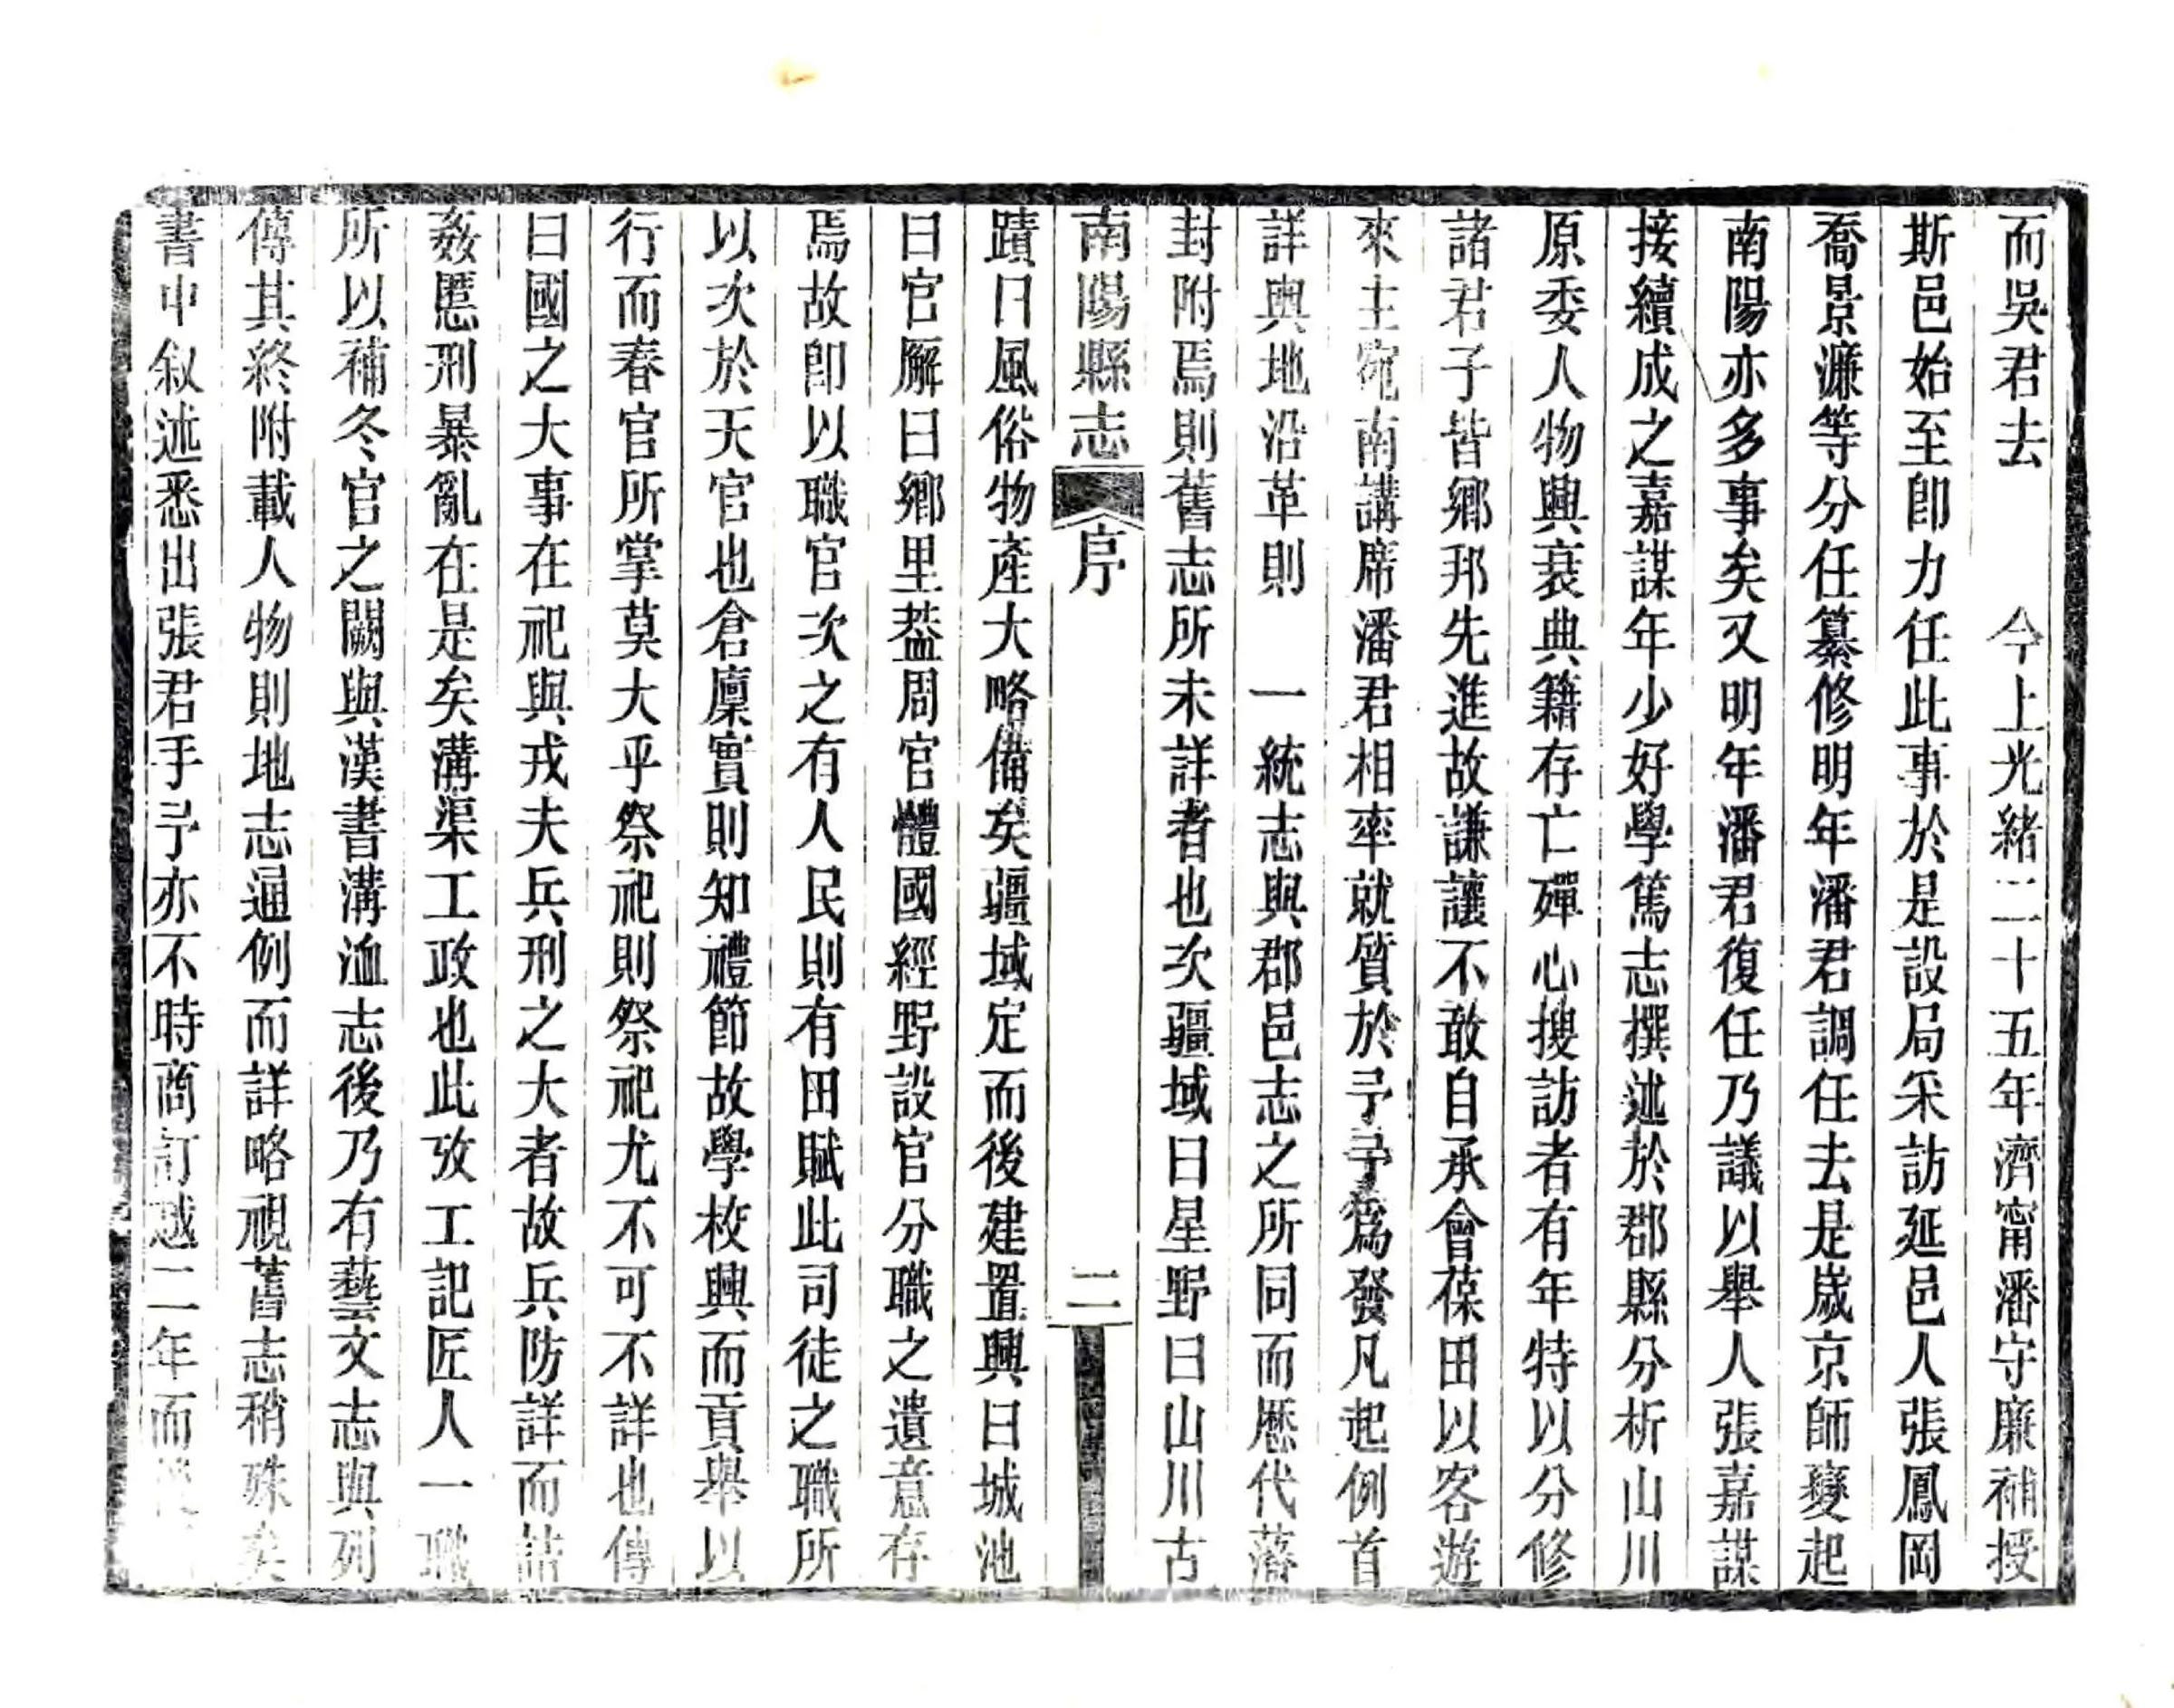 而吳君去　今上光緒二十五年濟甯潘守廉補授
斯邑始至卽力任此事於是設局采訪延邑人張鳳岡
喬景濂等分任纂修明年潘君調任去是歲京師變起
南陽亦多事矣又明年潘君復任乃議以舉人張嘉謀
接續成之嘉謀年少好學篤志撰述於郡縣分析山川
原委人物興衰典籍存亡殫心搜訪者有年特以分修
諸君子皆鄉邦先進故謙讓不敢自承會葆田以客遊
來主宛南講席潘君相率就質於予予爲發凡起例首
詳輿地沿革則　一統志與郡邑志之所同而歷代藩
封附焉則舊志所未詳者也次疆域曰星野曰山川古
南陽縣志　序　二
蹟曰風俗物產大略備矣疆域定而後建置興曰城池
曰官廨曰鄉里葢周官體國經野設官分職之遺意存
焉故卽以職官次之有人民則有田賦此司徒之職所
以次於天官也倉廩實則知禮節故學校興而貢舉以
行而春官所掌莫大乎祭祀則祭祀尤不可不詳也傳
曰國之大事在祀與戎夫兵刑之大者故兵防詳而詰
姦慝刑暴亂在是矣溝渠工政也此攷工記匠人一職
所以補冬官之闕與漢書溝洫志後乃有藝文志與列
傳其終附載人物則地志通例而詳略視舊志稍殊矣
書中叙述悉出張君手予亦不時商訂越二年而